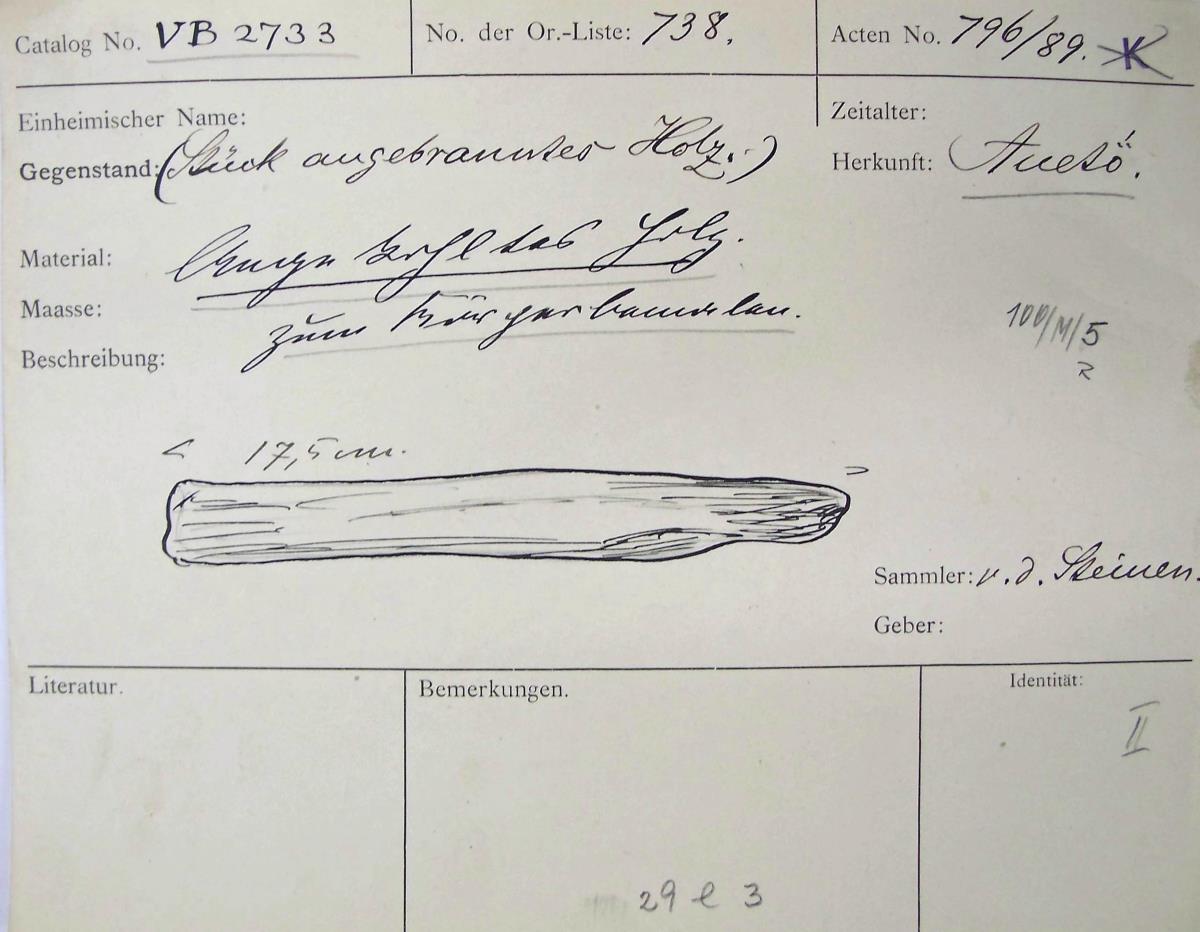 Catalog No. VB 2733
No. der Or.-Liste: 738.
Acten No. 796/89. K
Einheimischer Name:
Zeitalter:
Gegenstand: (Stück angebranntes Holz.)
Herkunft: (Auetö!).
Material: Angekohltes Holz.
Maasse: zum Körperbemalen.
100/M/5
R
Beschreibung:
< 17,5 cm. >
Sammler: v. d. Steinen.
Geber:
Literatur.
Bemerkungen.
Identität:
II
29 e 3